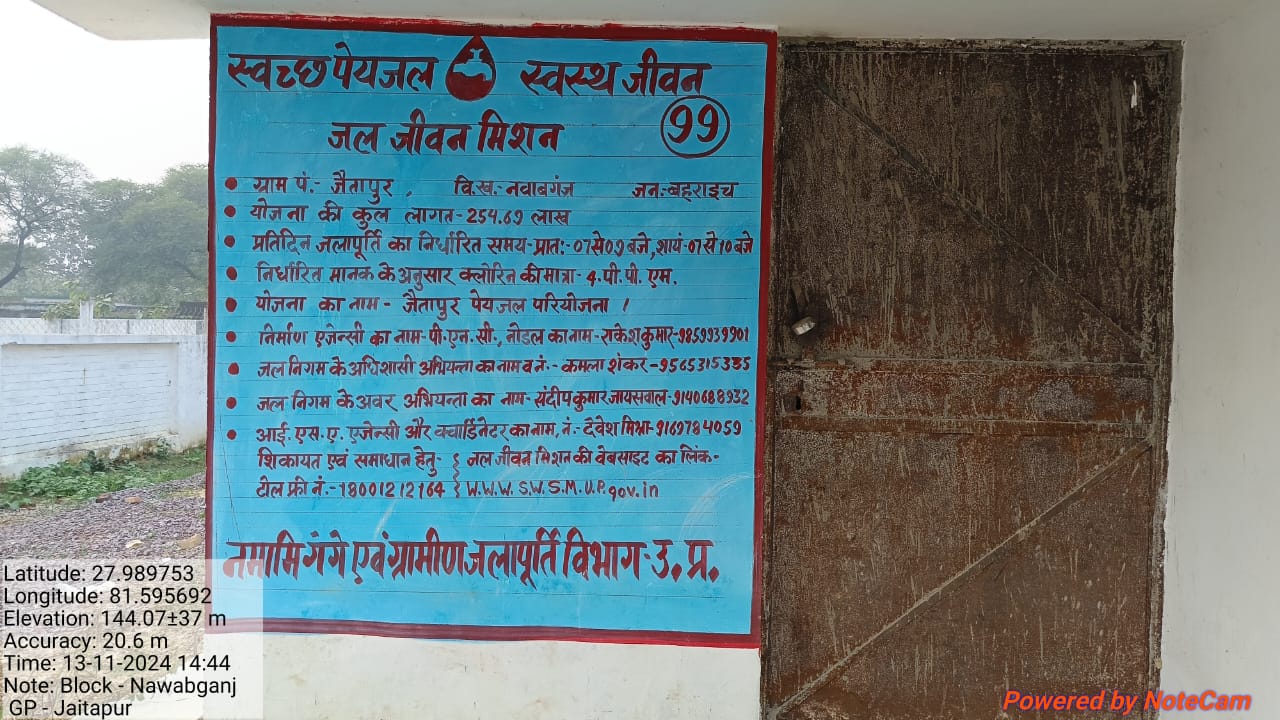 स्वच्छ पेयजल स्वस्थ जीवन
जल जीवन मिशन 99
• ग्राम पं.- जैतापुर, वि.ख.- नवाबगंज जन.-बहराइच
• योजना की कुल लागत- 254.69 लाख
• प्रतिदिन जलापूर्ति का निर्धारित समय-प्रात:- 07 से 09 बजे, शायं-07 से 10 बजे
• निर्धारित मानक के अनुसार क्लोरिन की मात्रा- 4.पी.पी. एम.
• योजना का नाम - जैतापुर पेयजल परियोजना ।
• निर्माण एजेन्सी का नाम-पी.एन.सी., नोडल का नाम-राकेश कुमार-9859939901
• जल निगम के अधिशासी अभियन्ता का नाम व नं.- कमला शंकर-9565315335
• जल निगम के अवर अभियन्ता का नाम- संदीप कुमार जायसवाल-9140688932
• आई. एस. ए. एजेन्सी और क्वार्डिनेटर का नाम, नं.- देवेश मिश्रा-9169784059
शिकायत एवं समाधान हेतु- { जल जीवन मिशन की वेबसाइट का लिंक-
टोल फ्री नं.-18001212164 { W.W.W. S.W.S.M.U.P.gov.in
नमामि गंगे एवं ग्रामीण जलापूर्ति विभाग-उ. प्र.
Latitude: 27.989753
Longitude: 81.595692
Elevation: 144.07±37 m
Accuracy: 20.6 m
Time: 13-11-2024 14:44
Note: Block - Nawabganj
GP - Jaitapur
Powered by NoteCam